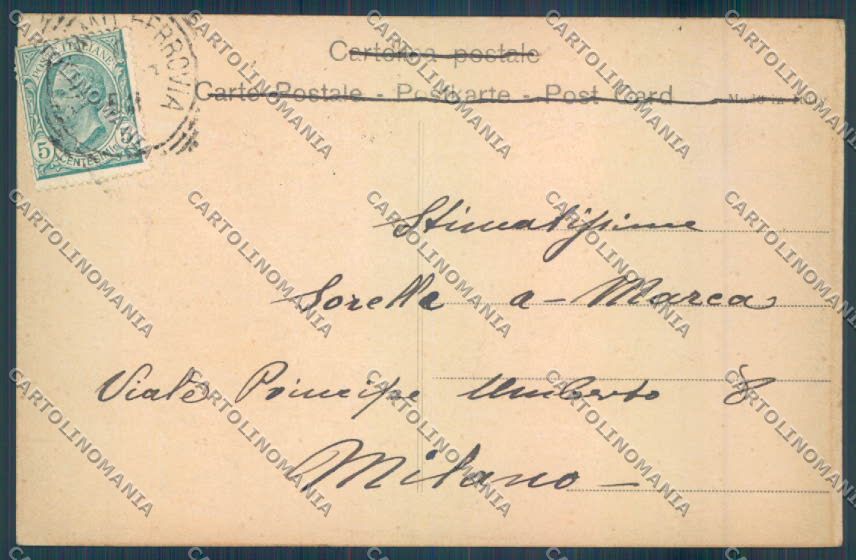 Cartolina postale
Carte Postale - Postkarte - Post Card
POSTE ITALIANE
5 CENTESIMI 5
FERROVIA
Stimatissime
Sorelle a-Marca
Viale Principe Umberto 8
Milano -
CARTOLINOMANIA